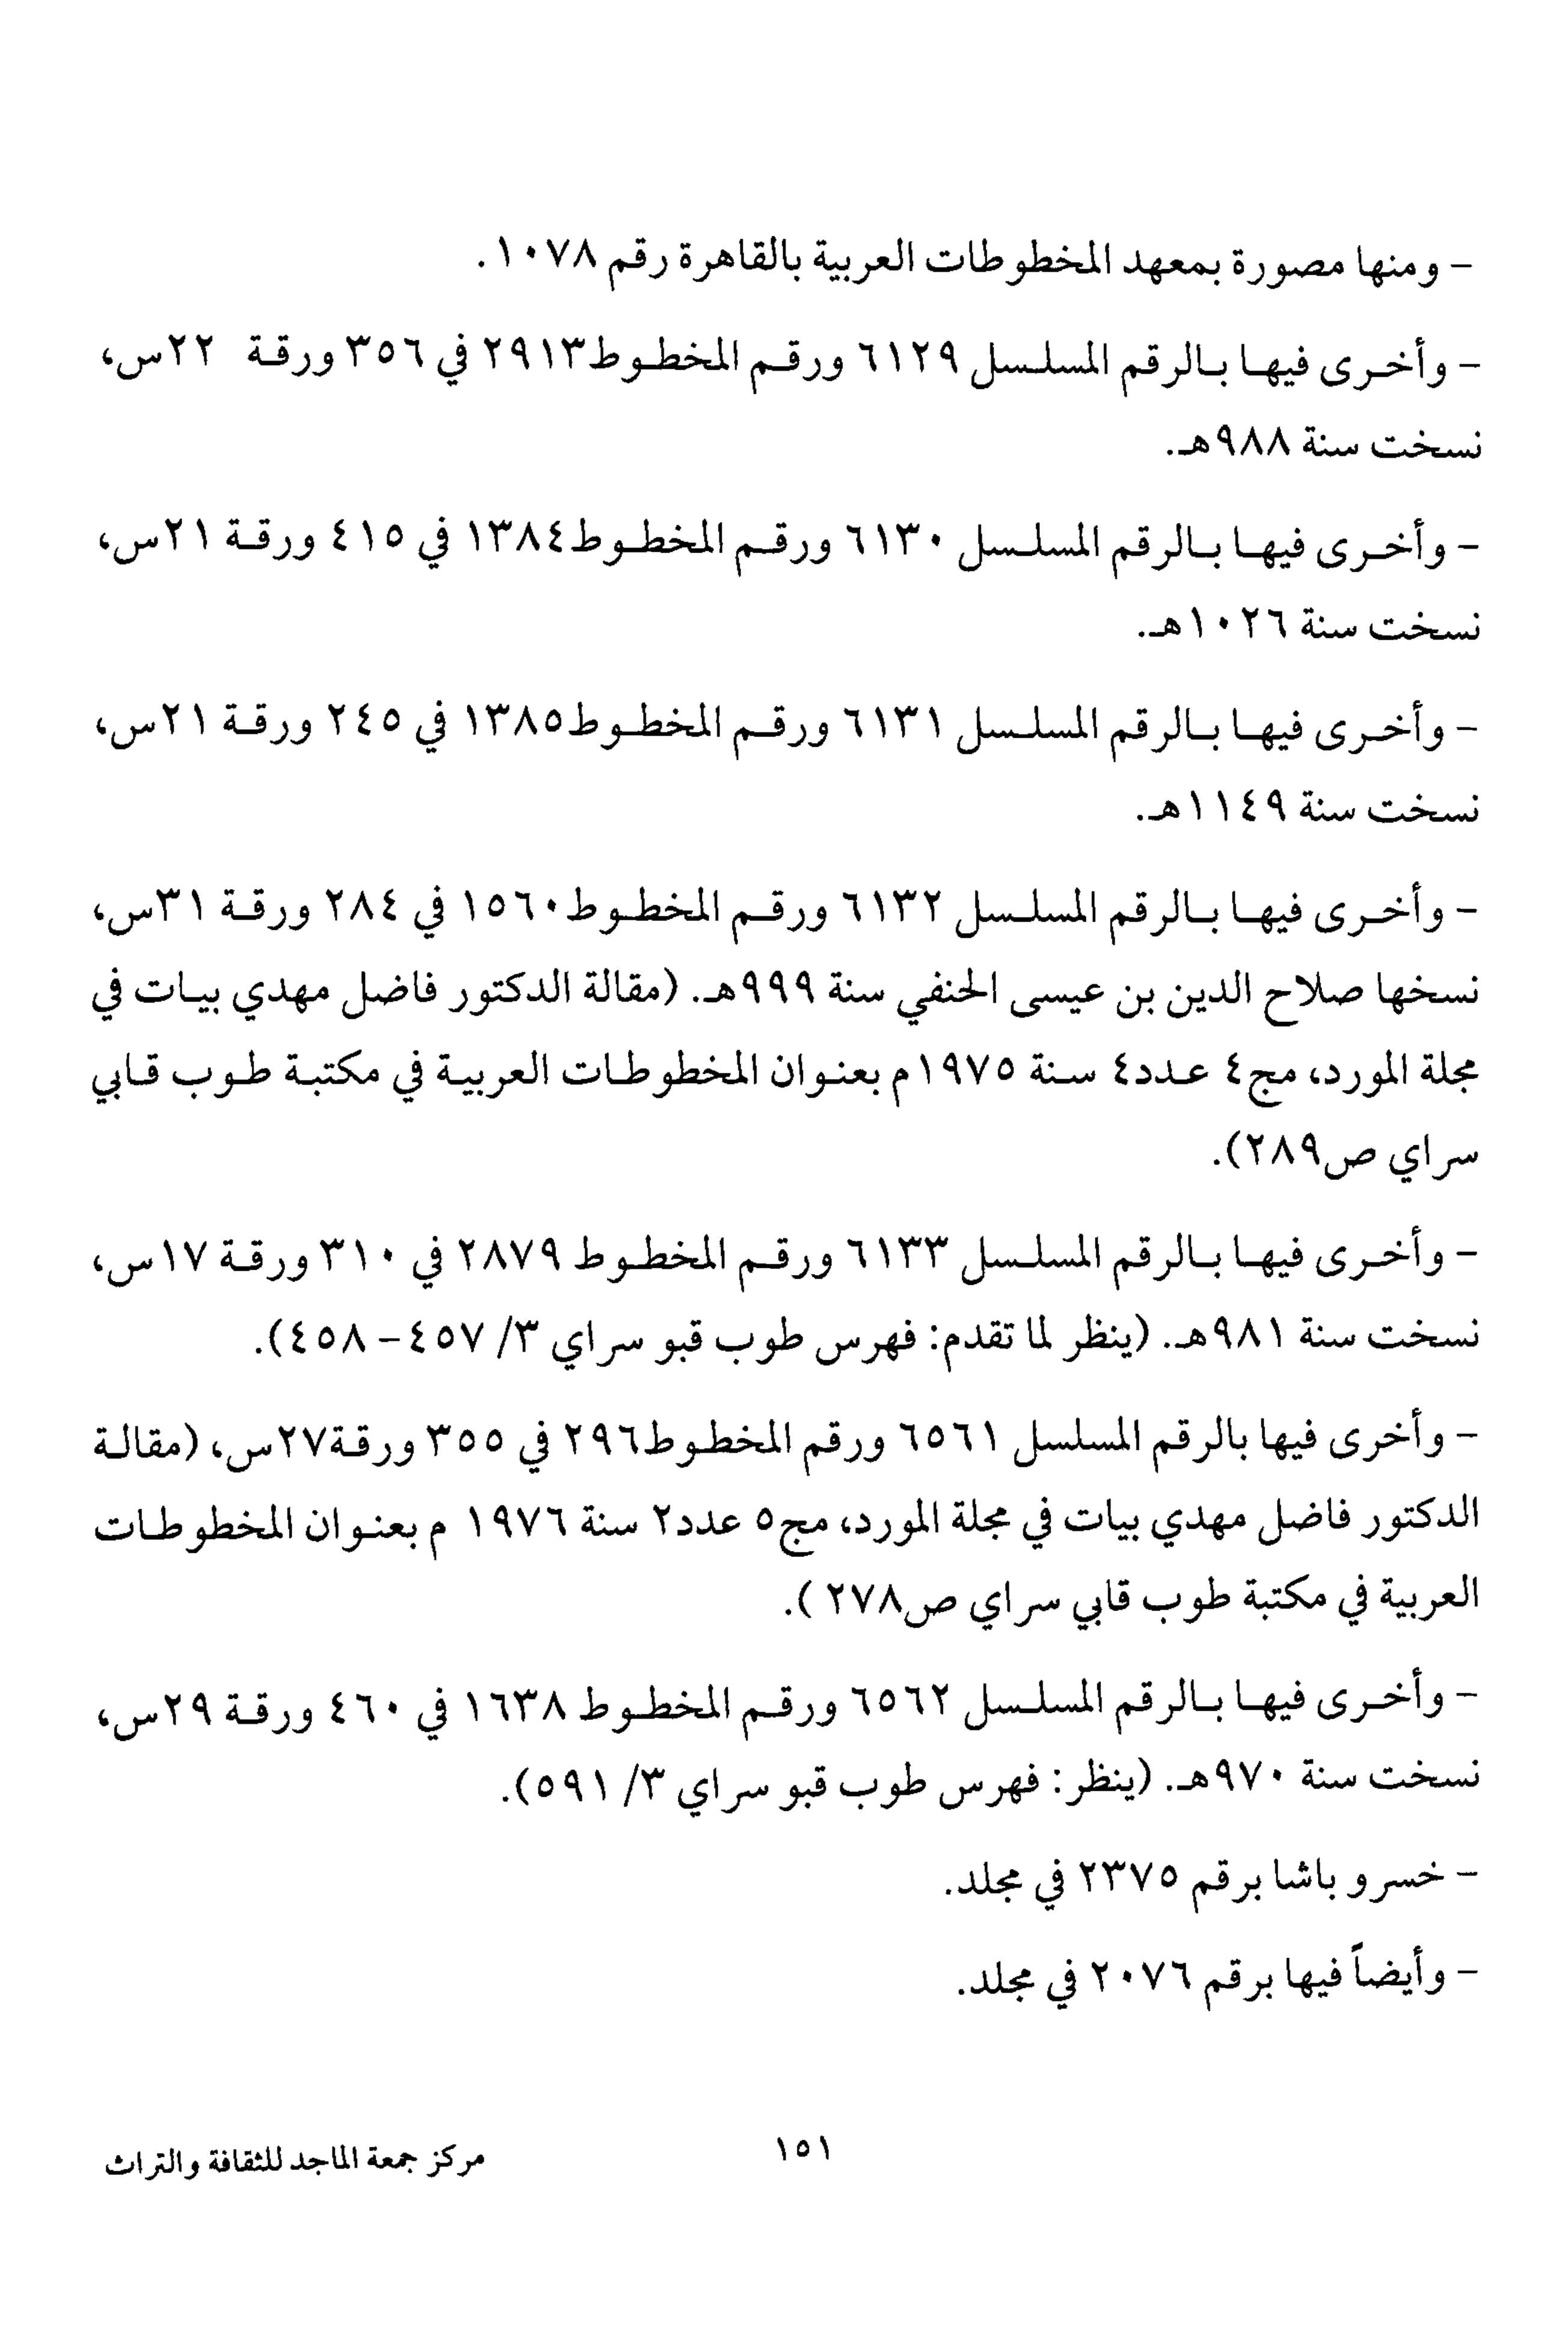 - ومنها مصورة بمعهد المخطوطات العربية بالقاهرة رقم ١٠٧٨.
- وأخرى فيها بالرقم المسلسل ٦١٢٩ ورقم المخطوط٢٩١٣ في ٣٥٦ ورقة ٢٢س،
نسخت سنة ٩٨٨هـ.
- وأخرى فيها بالرقم المسلسل ٦١٣٠ ورقم المخطوط١٣٨٤ في ٤١٥ ورقة ٢١س،
نسخت سنة ١٠٢٦هـ.
- وأخرى فيها بالرقم المسلسل ٦١٣١ ورقم المخطوط١٣٨٥ في ٢٤٥ ورقة ٢١س،
نسخت سنة ١١٤٩هـ.
- وأخرى فيها بالرقم المسلسل ٦١٣٢ ورقم المخطوط١٥٦٠ في ٢٨٤ ورقة ٣١س،
نسخها صلاح الدين بن عيسى الحنفي سنة ٩٩٩هـ. (مقالة الدكتور فاضل مهدي بيات في
مجلة المورد، مج٤ عدد٤ سنة ١٩٧٥م بعنوان المخطوطات العربية في مكتبة طوب قابي
سراي ص٢٨٩).
- وأخرى فيها بالرقم المسلسل ٦١٣٣ ورقم المخطوط ٢٨٧٩ في ٣١٠ ورقة ١٧س،
نسخت سنة ٩٨١هـ. (ينظر لما تقدم: فهرس طوب قبو سراي ٣/ ٤٥٧- ٤٥٨).
- وأخرى فيها بالرقم المسلسل ٦٥٦١ ورقم المخطوط٢٩٦ في ٣٥٥ ورقة٢٧س، (مقالة
الدكتور فاضل مهدي بيات في مجلة المورد، مج٥ عدد٢ سنة ١٩٧٦ م بعنوان المخطوطات
العربية في مكتبة طوب قابي سراي ص٢٧٨ ).
- وأخرى فيها بالرقم المسلسل ٦٥٦٢ ورقم المخطوط ١٦٣٨ في ٤٦٠ ورقة ٢٩س،
نسخت سنة ٩٧٠هـ. (ينظر: فهرس طوب قبو سراي ٣/ ٥٩١).
- خسرو باشا برقم ٢٣٧٥ في مجلد.
- وأيضاً فيها برقم ٢٠٧٦ في مجلد.
١٥١
مركز جمعة الماجد للثقافة والتراث